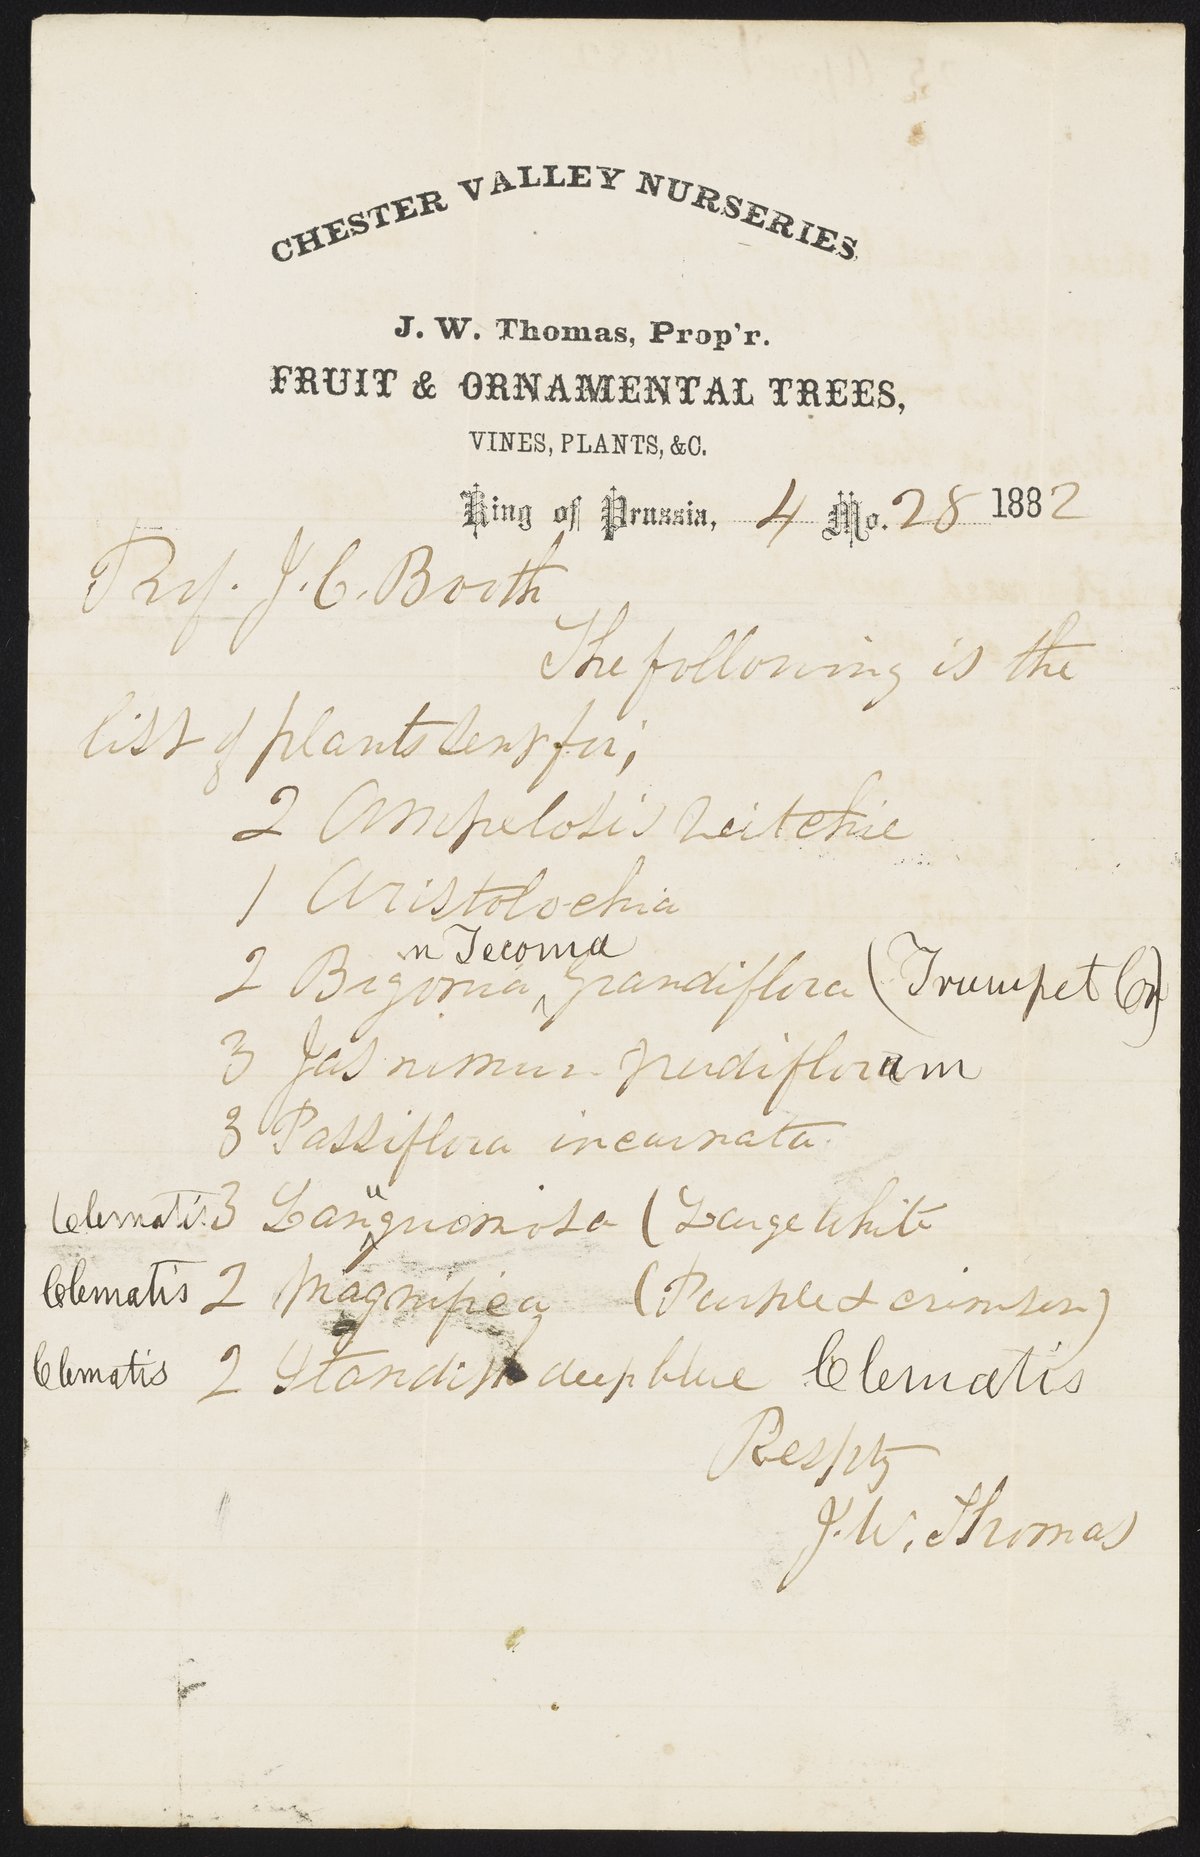 CHESTER VALLEY NURSERIES
J. W. Thomas, Prop'r.
FRUIT & ORNAMENTAL TREES,
VINES, PLANTS, &C.
King of Prussia, 4 Mo. 28 1882
Prof. J. C. Booth
The following is the
list of plants sent for;
2 Ampelosis Veitchie
1 Aristolochia
n Tecoma
2 Bigonia ^ Grandiflora (Trumpet Cr)
3 Jasnimum nudifloram
3 Passiflora incarnata
Clematis 3 Lanuguonosa (Large White
Clematis 2 Magnifica (Purple & crimson)
Clematis 2 Standish deep blue Clematis
Respty
J. W. Thomas